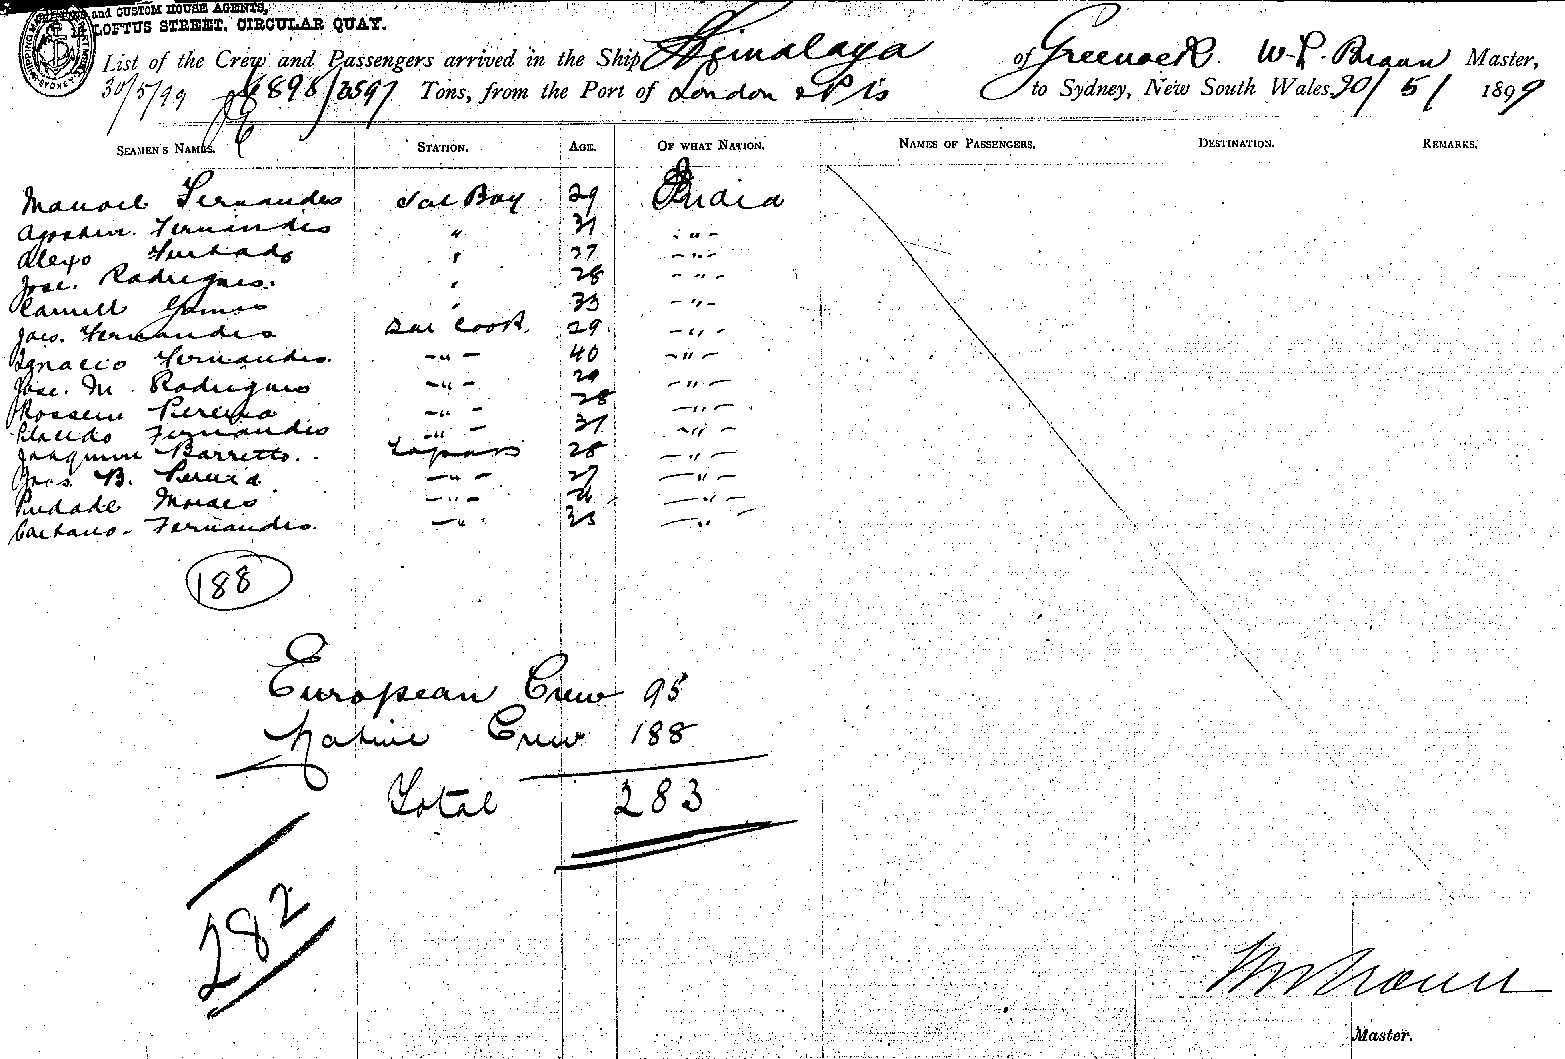 and CUSTOM HOUSE AGENTS,
LOFTUS STREET, CIRCULAR QUAY.
List of the Crew and Passengers arrived in the Ship Himalaya of Greenock. W. L. Broun Master,
30/5/99 6898/3597 Tons, from the Port of London & P'ts to Sydney, New South Wales 30/5/1899
SEAMEN'S NAMES. STATION. AGE. OF WHAT NATION. NAMES OF PASSENGERS. DESTINATION. REMARKS.
Manoel Fernandes Sal Boy 29 India
Agostin. Fernandes " 31 - " -
Alexo Furtado " 27 - " -
Jose. Rodrigues. " 28 - " -
Gomes " 33 - " -
Joao. Fernandes Sal Cook. 29 - " -
Ignacio Fernandes. - " - 40 - " -
Jose. M. Rodrigues - " - 29 - " -
Pereira - " - 28 - " -
Placido Fernandes - " - 31 - " -
Joaquim Barretto. Topass 28 - " -
Joas B. Pereira - " - 27 - " -
Piedade Moraes - " - - " -
Caetano. Fernandes. - " - - " -
188
European Crew 95
Native Crew 188
Total 283
282
Master.